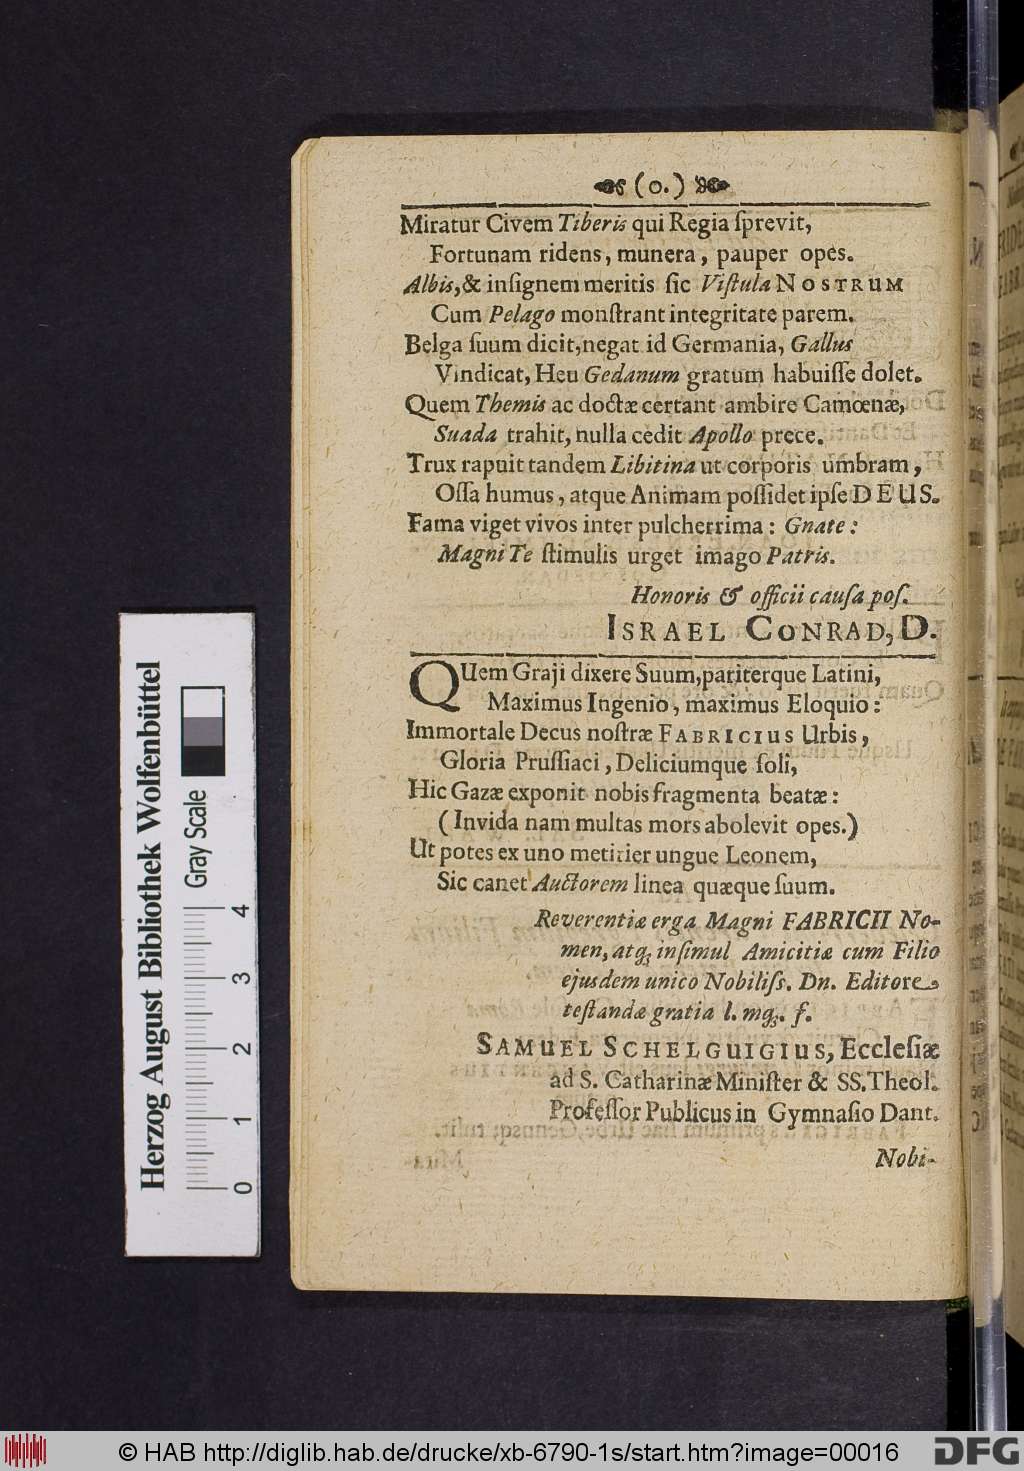 (0.)
Miratur Civem Tiberis qui Regia ſprevit,
Fortunam ridens, munera, pauper opes.
Albis, & inſignem meritis ſic Viſtula NOSTRUM
Cum Pelago monſtrant integritate parem.
Belga ſuum dicit, negat id Germania, Gallus
Vindicat, Heu Gedanum gratum habuiſſe dolet.
Quem Themis ac doctæ certant ambire Camœnæ,
Suada trahit, nulla cedit Apollo prece.
Trux rapuit tandem Libitina ut corporis umbram,
Oſſa humus, atque Animam poſſidet ipſe DEUS.
Fama viget vivos inter pulcherrima: Gnate:
Magni Te ſtimulis urget imago Patris.
Honoris & officii cauſa poſ.
ISRAEL CONRAD, D.
QUem Graji dixere Suum, pariterque Latini,
Maximus Ingenio, maximus Eloquio:
Immortale Decus noſtræ FABRICIUS Urbis,
Gloria Pruſſiaci, Deliciumque ſoli,
Hic Gazæ exponit nobis fragmenta beatæ:
(Invida nam multas mors abolevit opes.)
Ut potes ex uno metirier ungue Leonem,
Sic canet Auctorem linea quæque ſuum.
Reverentiæ erga Magni FABRICII No-
men, atq; inſimul Amicitiæ cum Filio
ejusdem unico Nobiliſs. Dn. Editore
teſtandæ gratia l. mq;. f.
SAMUEL SCHELGUIGIUS, Eccleſiæ
ad S. Catharinæ Miniſter & SS. Theol.
Profeſſor Publicus in Gymnaſio Dant.
Nobi-
Herzog August Bibliothek Wolfenbüttel
Gray Scale
0 1 2 3 4
© HAB http://diglib.hab.de/drucke/xb-6790-1s/start.htm?image=00016
DFG